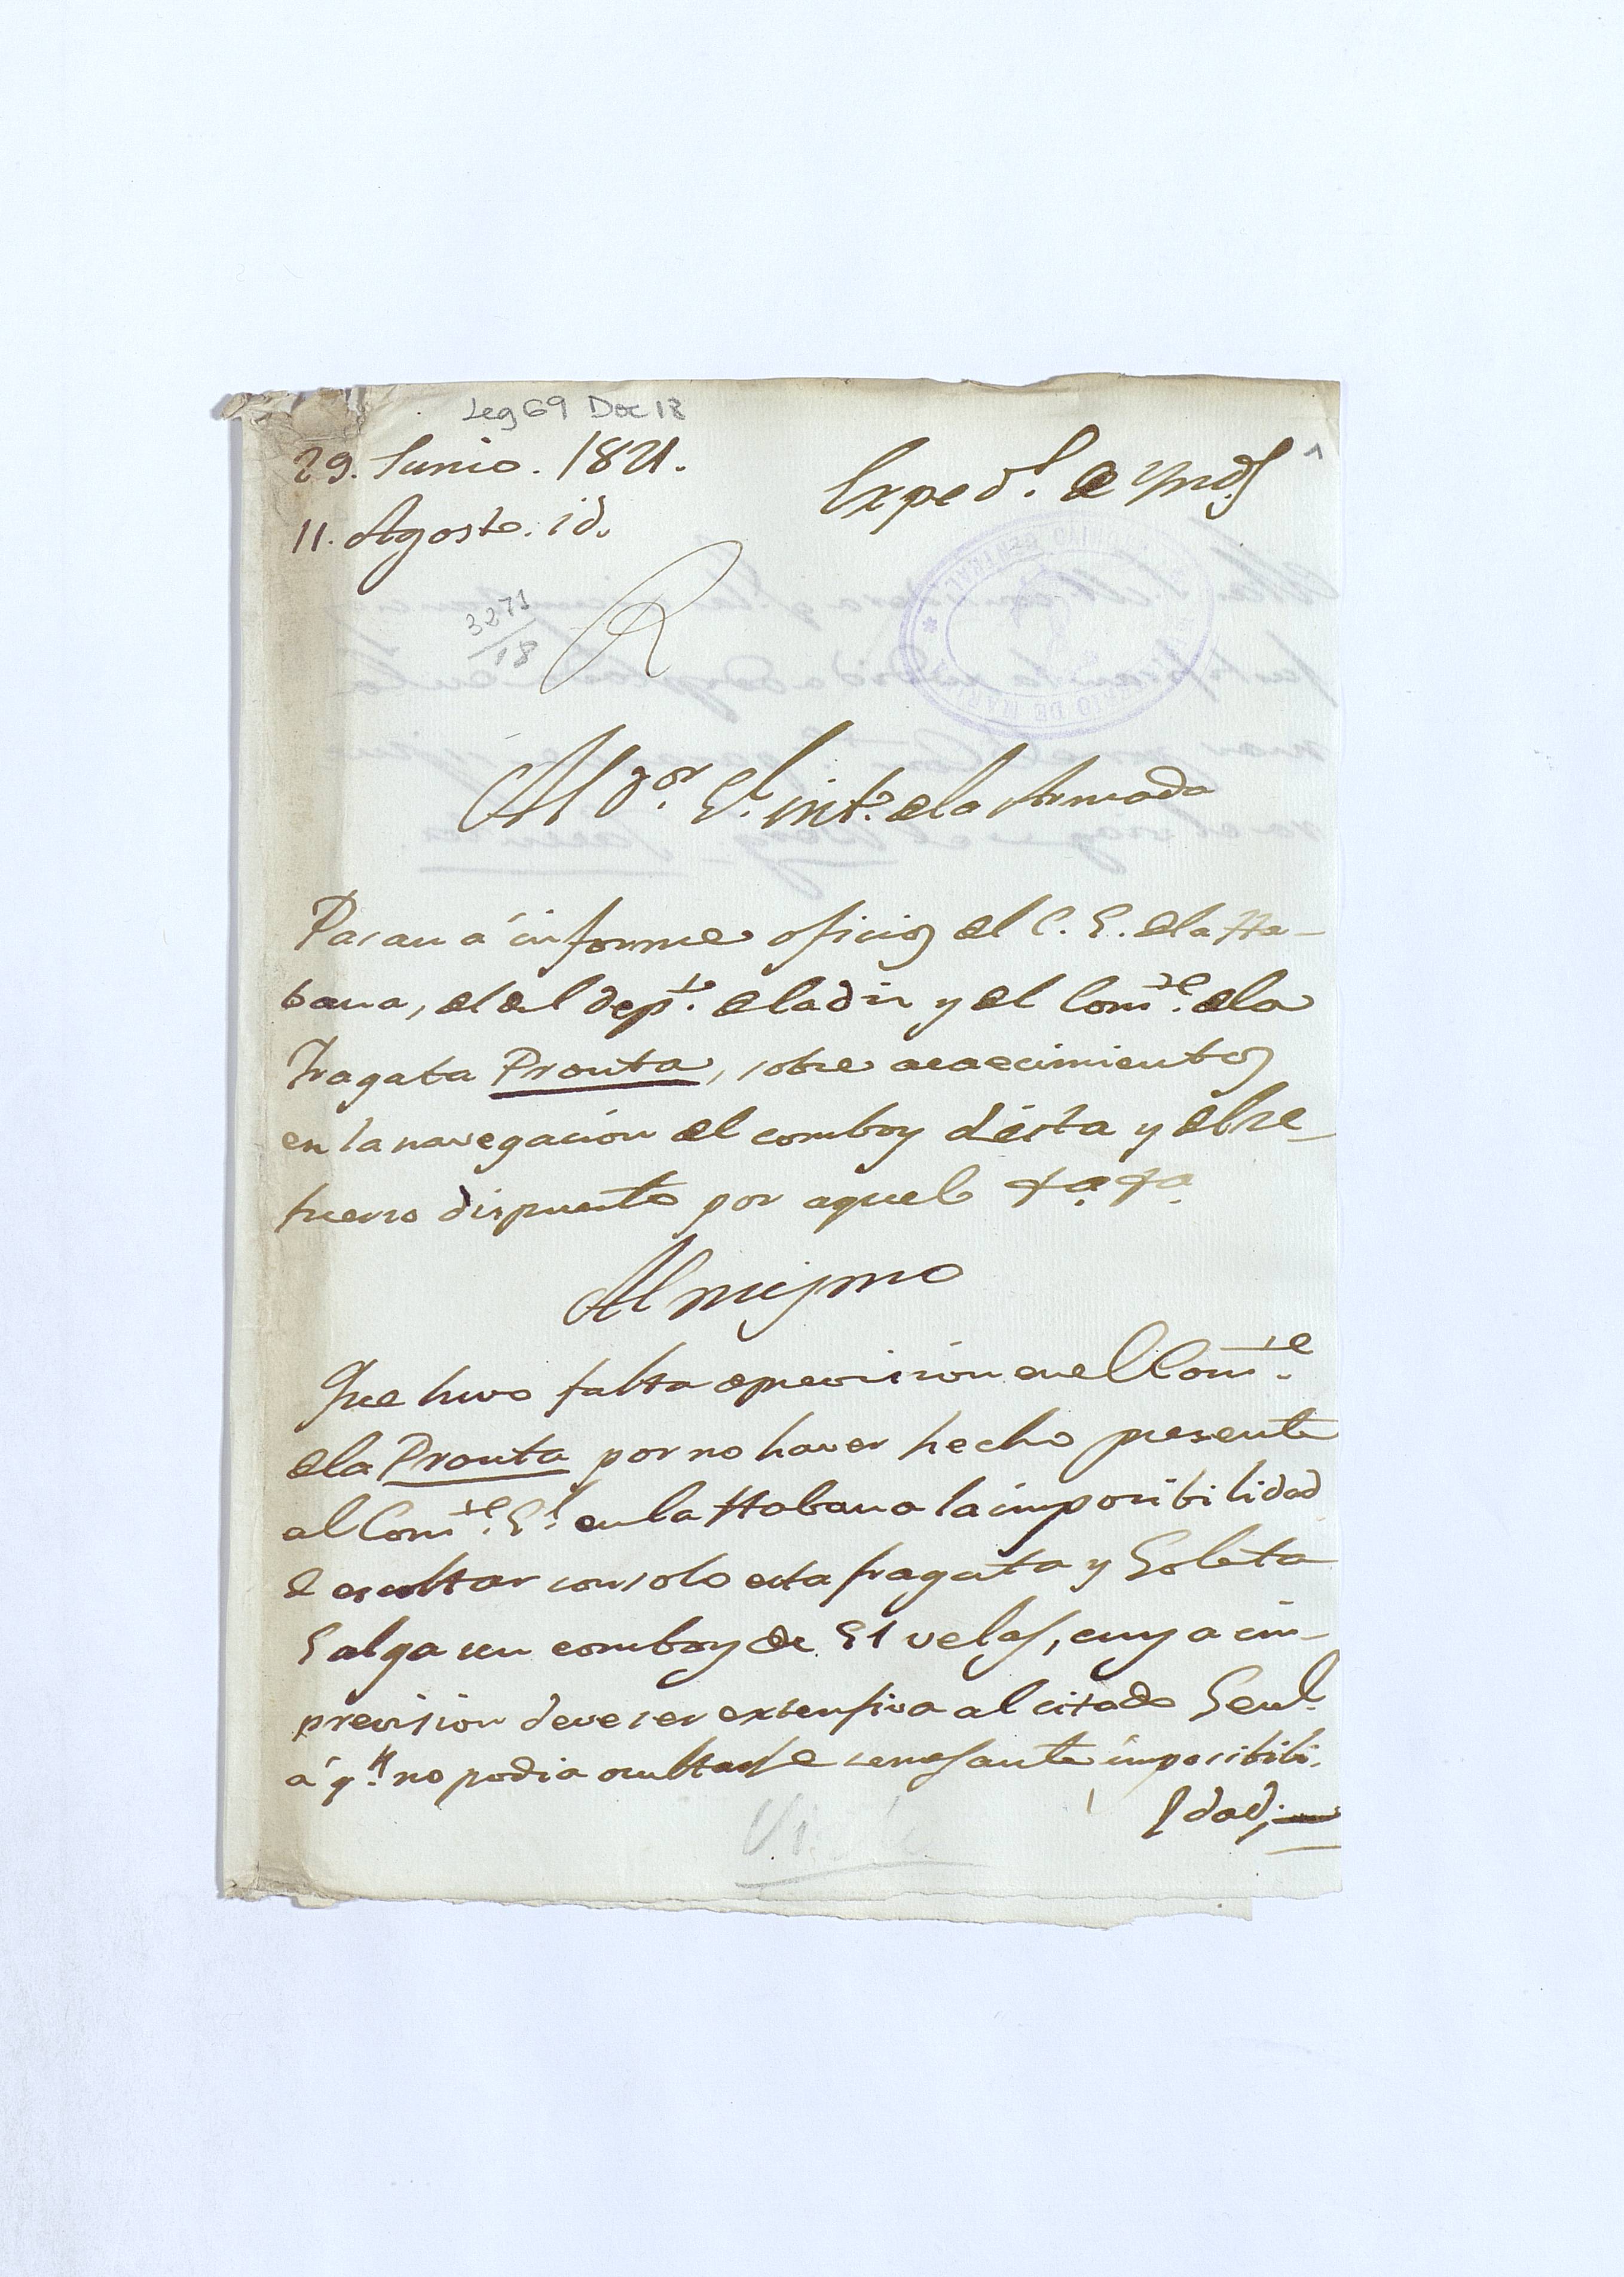 Leg 69 Doc 18
29. Junio. 1821.
Exped.s de Ynd.s
1
11. Agosto. id.
3271
18
Al Yor. Gl. int.o de la Armada
Pasan á informe oficios del C. G. de la Ha-
bana, el del dep.to de Cadiz y del Com.te de la
Fragata Pronta, sobre acaecimientos
en la navegacion del comboy d'ésta y del re-
fuerzo dispuesto por aquel
Al mismo
Que huvo falta de prevision en el Com.te
de la Pronta por no haver hecho presente
al Com.te Gl. en la Habana la imposibilidad
de escoltar con solo esta fragata y Goleta
Galga un comboy de 51 velas, cuya im-
prevision deve ser extensiva al citado Genl.
á q.n no podia ocultarse semejante imposibili-
dad;